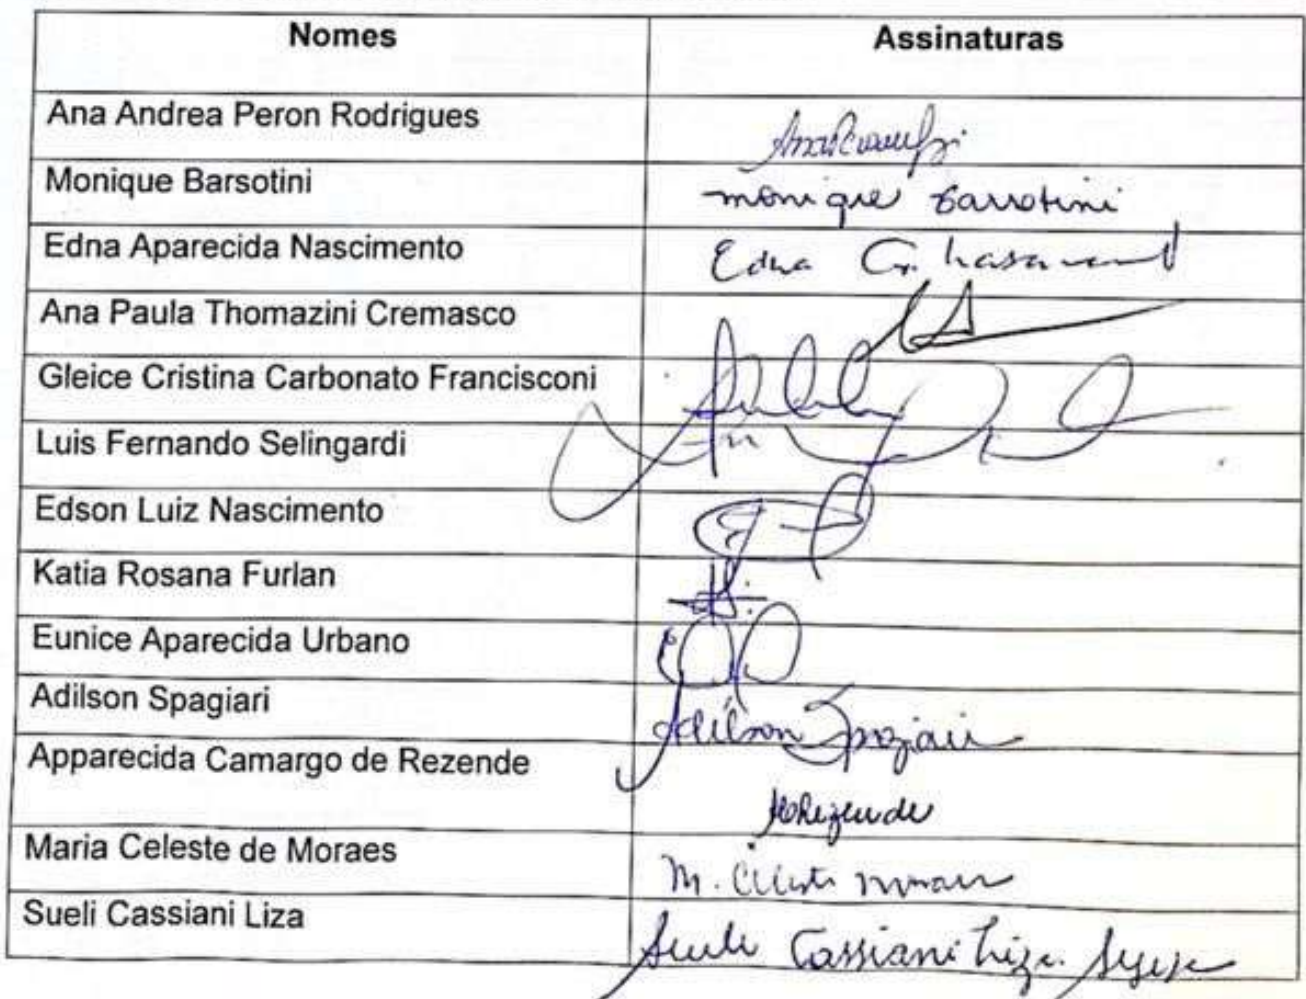 Nomes Assinaturas
Ana Andrea Peron Rodrigues
Monique Barsotini monique Barsotini
Edna Aparecida Nascimento Edna
Ana Paula Thomazini Cremasco
Gleice Cristina Carbonato Francisconi
Luis Fernando Selingardi
Edson Luiz Nascimento
Katia Rosana Furlan
Eunice Aparecida Urbano
Adilson Spagiari Adilson Spagiari
Apparecida Camargo de Rezende
Maria Celeste de Moraes M. Celeste moraes
Sueli Cassiani Liza Sueli Cassiani Liza